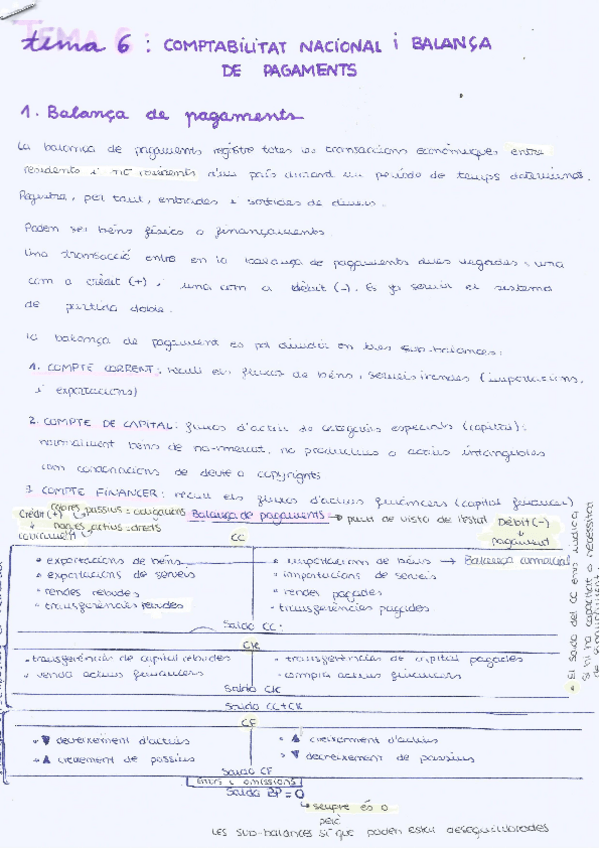 tema 6: COMPTABILITAT NACIONAL i BALANÇA
DE PAGAMENTS
1. Balança de pagaments
La balança de pagaments registra totes les transaccions econòmiques entre
residents i no residents d'un país durant un període de temps determinat.
Registra, per tant, entrades i sortides de diners.
Poden ser béns físics o finançaments.
Una transacció entra en la balança de pagaments dues vegades, una
com a crèdit (+) i una com a dèbit (-). Es fa servir el sistema
de partida doble.
La balança de pagament es pot dividir en tres sub-balances:
1. COMPTE CORRENT: recull els fluxos de béns, serveis i rendes (importacions,
i exportacions)
2. COMPTE DE CAPITAL: fluxos d'actius de categories especials (capital):
normalment béns de no-mercat, no productius o actius intangibles
com condonacions de deute o copyrights
3. COMPTE FINANCER: recull els fluxos d'actius financers (capital financer)
Crèdit (+) majors passius = obligacions Balança de pagaments → punt de vista de l'estat Dèbit (-)
actius = drets
pagament
CC
• exportacions de béns
• importacions de béns → Balança comercial
• exportacions de serveis
• importacions de serveis
• rendes rebudes
• rendes pagades
• transferències rebudes
• transferències pagades
Saldo CC:
CK
• transferències de capital rebudes
• transferències de capital pagades
• venda actius financers
• compra actius financers
Saldo CK
Saldo CC+CK
CF
• ▼ decreixement d'actius
• ▲ creixement d'actius
• ▲ creixement de passius
• ▼ decreixement de passius
Saldo CF
errors i omissions
Saldo BP = 0
↳ sempre és 0
però
les sub-balances sí que poden estar desequilibrades
• El saldo del CC ens indica
si hi ha capacitat o necessitat
de finançament